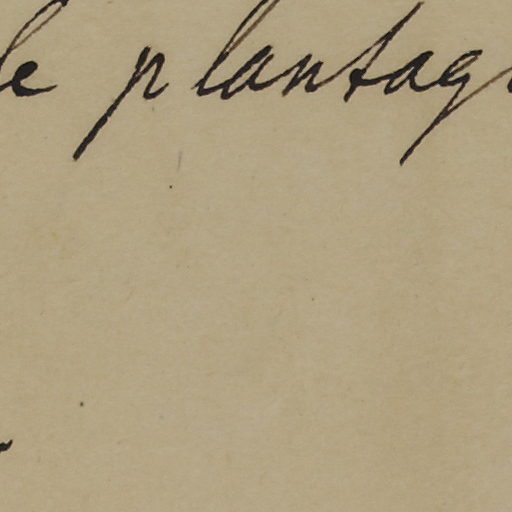 le plantag